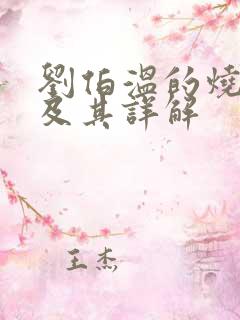 劉伯溫的燒
及其詳解
王杰